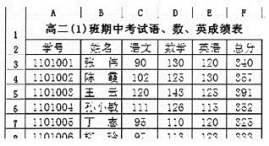 A B C D E F
1 高二(1)班期中考试语、数、英成绩表
2 学号 姓名 语文 数学 英语 总分
3 1101001 张 伟 90 130 120 340
4 1101002 陈 霞 102 125 130 357
5 1101003 王 云 120 143 128 391
6 1101004 孙小敏 111 126 115 352
7 1101005 丁 95 110 120 325
8 1101006